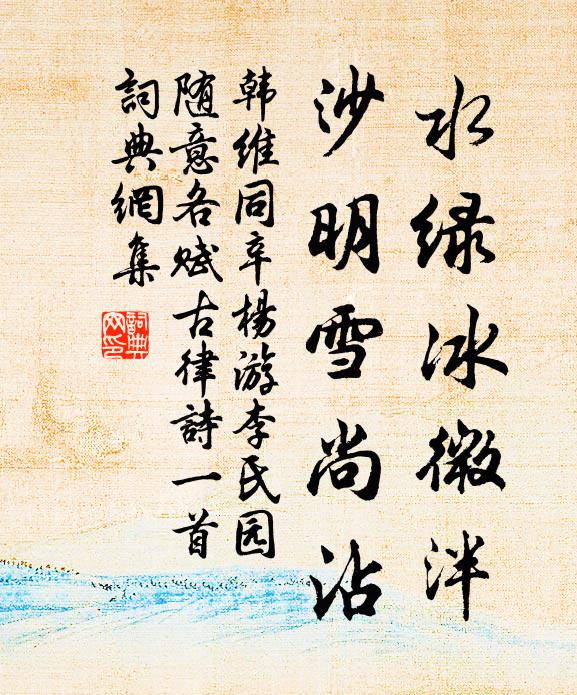 水绿冰微泮
沙明雪尚沾
韩维同辛杨游李氏园
随意各赋古律詩一首
詞典網集
詞典
网印